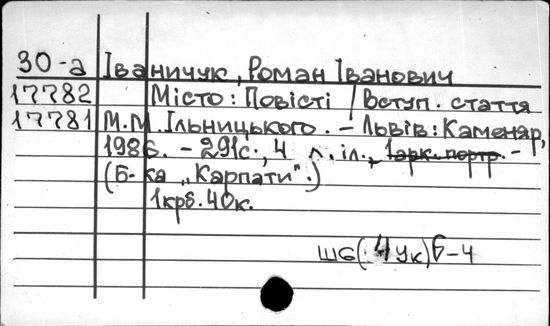 30-а Іваничук, Роман Іванович
17782 Місто: Повісті / Вступ. стаття
17781 М.М. Ільницького. – Львів: Каменяр,
1986. – 291с., 4 л. іл., 1арк. портр. –
(Б-ка „Карпати".)
1крб. 40к.
Ш6(4Ук)6-4